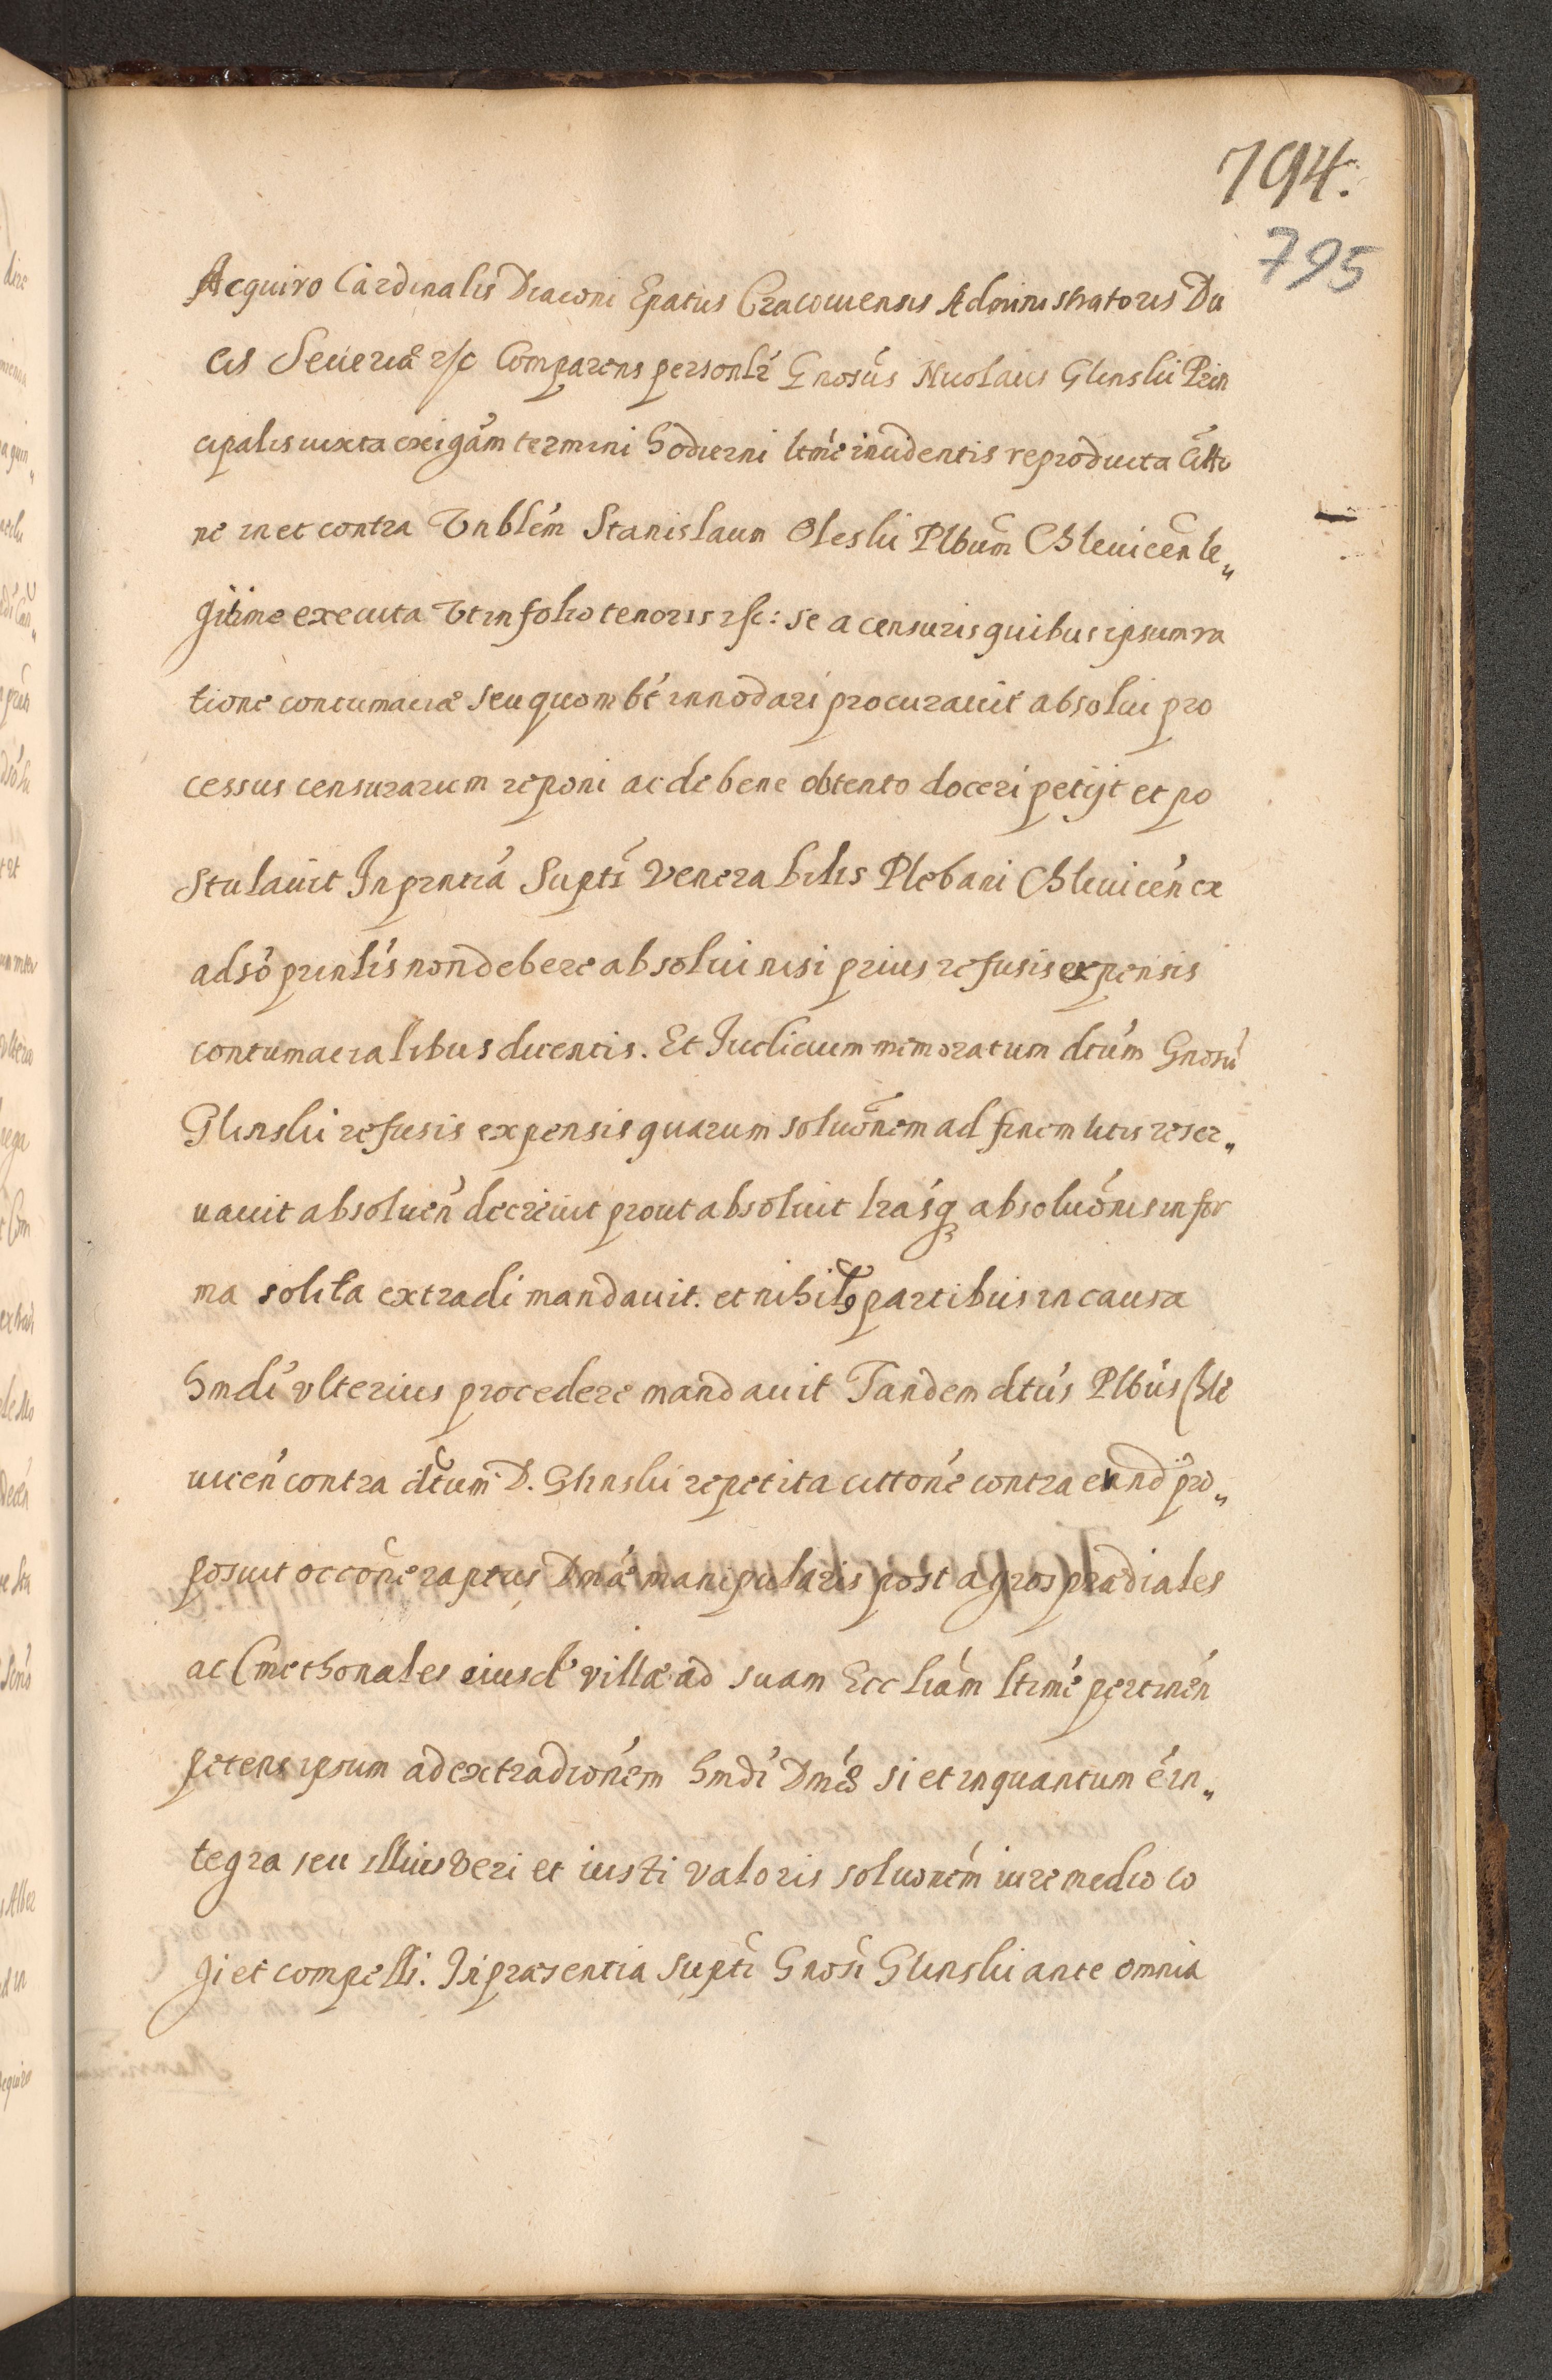 794.
795
Aequiro Cardinalis Diaconi Epatus Cracouiensis Administratoris Du
cis Seueriæ &c Comparens personlr Gnosus Nicolaus Glinski Prin
cipalis iuxta exigám termini hodierni ltmé incidentis reproducta Citto
ne in et contra Vnblém Stanislaum Oleski Plbum Chleuicén le„
gitime executa Vt in folio tenoris &c: se a censuris quibus ipsum ra
tione contumaciæ seu quombt́ innodari procurauit absolui pro
cessus censurarum reponi ac de bene obtento doceri petijt et po
stulauit In prntia Supti Venerabilis Plebani Chleuicén ex
adso prinlis non debere absolui nisi prius refusis expensis
contumacialibus dicentis. Et Iudicium memoratum dtúm Gnosú
Glinski refusis expensis quarum soluónem ad finem litis reser„
uauit absoluén decreuit prout absoluit lrásq absoluónis in for
ma solita extradi mandauit. et nihilo partibus in causa
hmdi vlterius procedere mandauit Tandem dtús Plbús Chle
uicén contra dtum D. Glinski repetita cittoné contra eund pro„
posuit occone raptus Dmæ manipularis post agros prædiales
ac Cmethonales eiusd villæ ad suam Eccliám ltimé pertinén
petens ipsum ad extradioném hmdi Dmæ si et in quantum é in„
tegra seu illius veri et iusti valoris soluoném iure medio co
gi et compelli. In præsentia supti Gnosi Glinski ante omnia